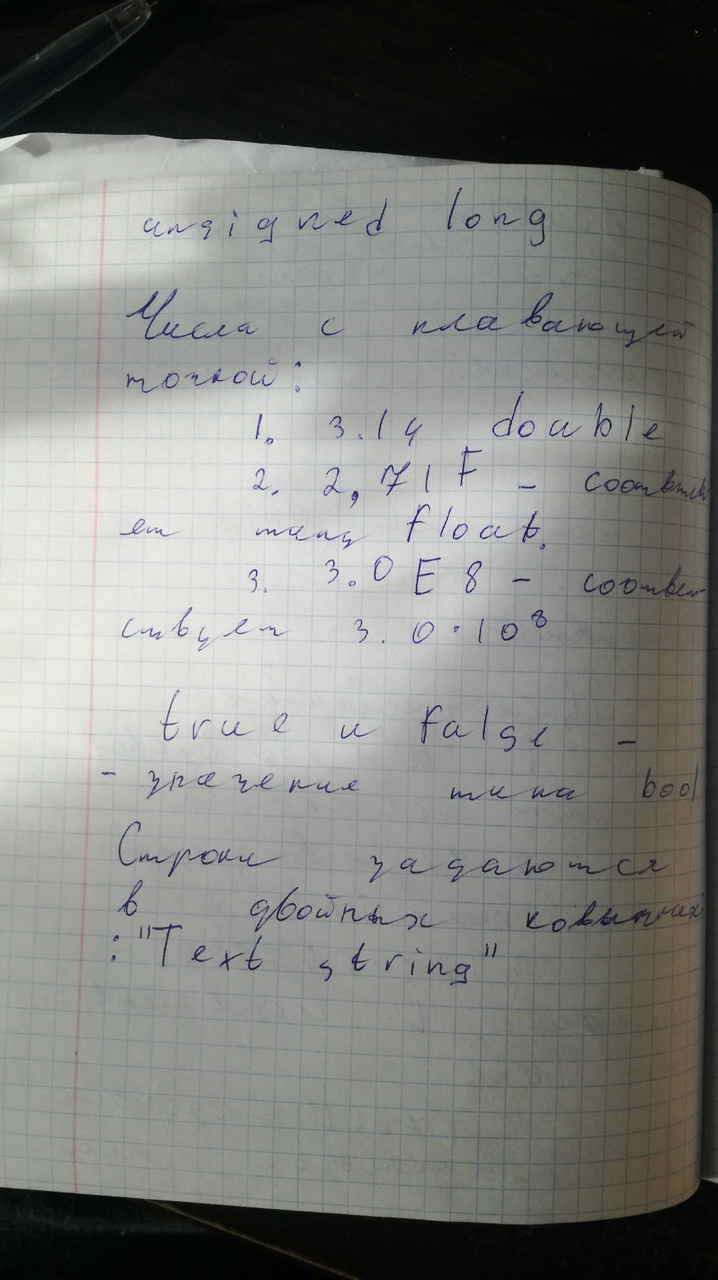 unsigned long
Числа с плавающей
точкой:
1. 3.14 double
2. 2,71F - соответству
ет типу float.
3. 3.0E8 - соответ-
ствует 3.0·10⁸
true и false -
- значение типа bool
Строки задаются
в двойных ковычках
:"Text string"